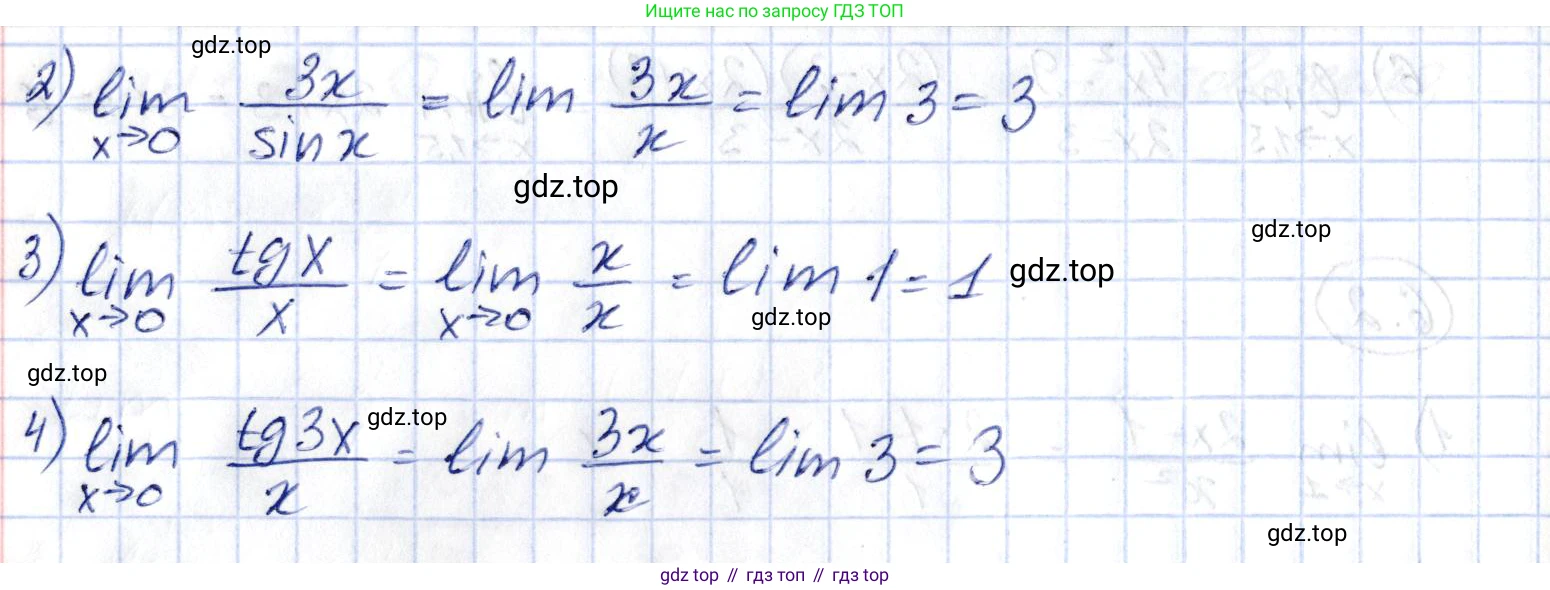 Ищите нас по запросу ГДЗ ТОП
gdz.top
2) lim x→0 3x/sin x = lim 3x/x = lim 3 = 3
gdz.top
gdz.top
3) lim x→0 tg x/x = lim x→0 x/x = lim 1 = 1 gdz.top
gdz.top
gdz.top
4) lim x→0 tg 3x/x = lim 3x/x = lim 3 = 3
gdz.top
gdz.top
gdz top // гдз топ // гдз top